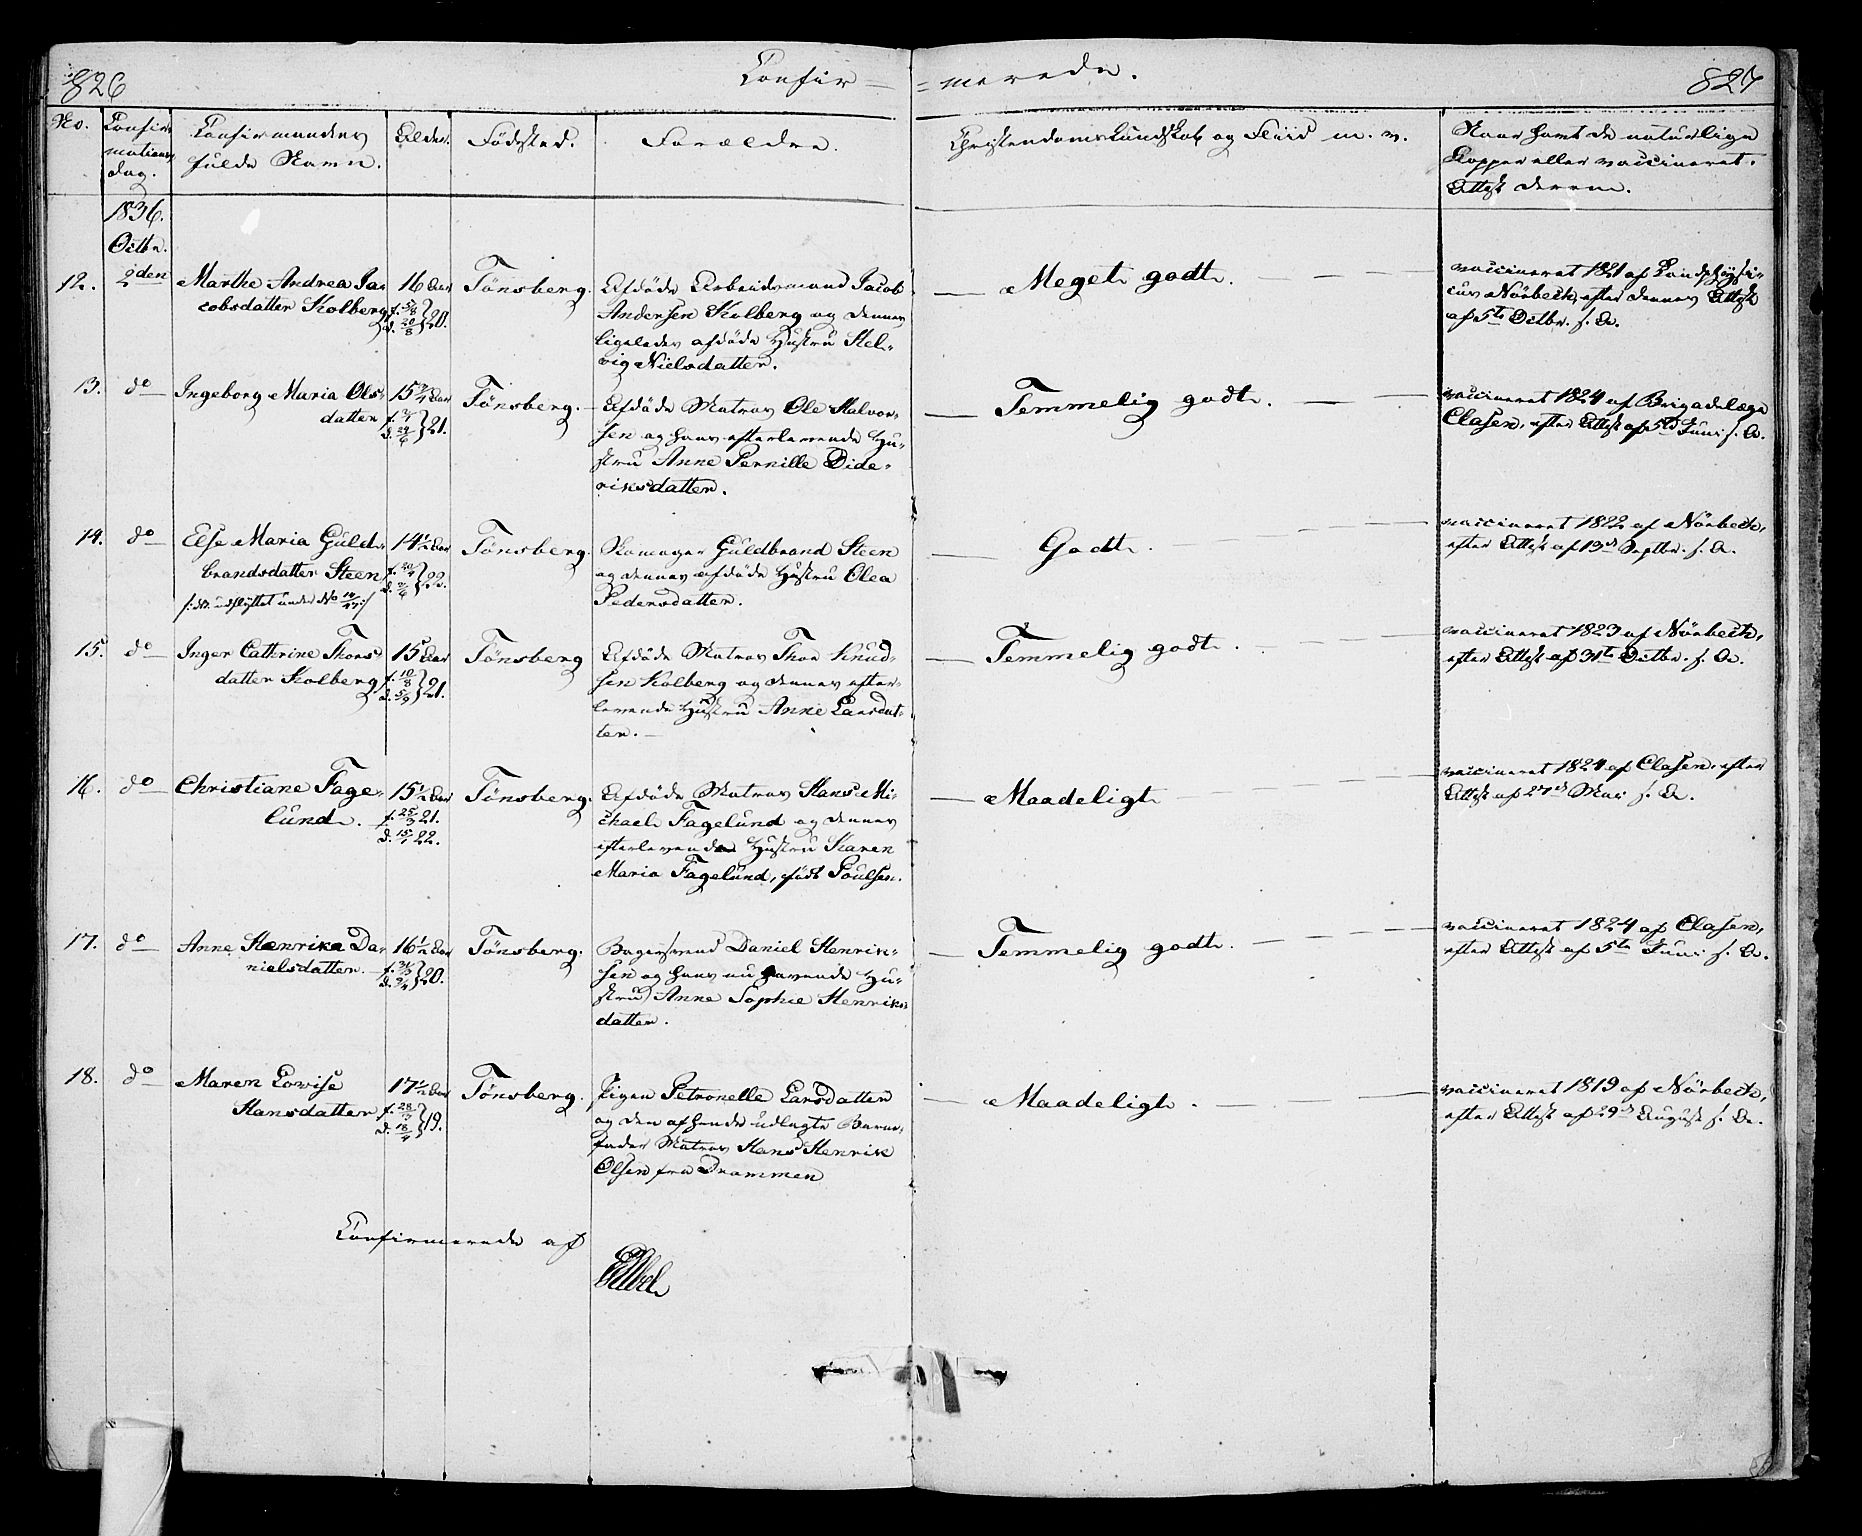 826
Confir = = merede.
827
No. Confirmations dag. Confirmandens fulde Navn. Alder. Födsted. Forældre. Christendoms Kundskab og Fliid m. v. Naar havt de naturlige Kopper eller vaccineret. Attest derom.
1836.
Octbr.
12. 2den Marthe Andrea Ja-
cobsdatter Kolberg
16 Aar
f. 5/8 } 20.
d. 20/8
Tönsberg.
Afdöde Arbeidsmand Jacob
Andersen Kolberg og dennes
ligeledes afdöde Hustru Hel-
vig Nielsdatter.
Meget godt.
vaccineret 1821 af Landphysi-
cus Nörbech, efter dennes Attest
af 5te Octbr. s. A.
13. do Ingeborg Maria Ols-
datter
15 3/4 Aar
Tönsberg.
Afdöde Matros Ole Halvor-
sen og hans efterlevende Hu-
stru Anne Pernille Dide-
riksdatter.
Temmelig godt.
vaccineret 1824 af Brigadelæge
Clasen, efter Attest af 5te Juni s. A.
14. do Else Maria Guld-
brandsdatter Steen
14 1/2 Aar
Tönsberg.
Skomager Guldbrand Steen
og dennes afdöde Hustru Olea
Pedersdatter.
Godt.
vaccineret 1822 af Nörbech,
efter Attest af 13de Septbr. s. A.
15. do Inger Cathrine Thors-
datter Kolberg
15 Aar
f. 10/8 } 21.
d. 5/9
Tönsberg
Afdöde Matros Thor Knud-
sen Kolberg og dennes efter-
levende Hustru Anne Larsdat-
ter.
Temmelig godt.
vaccineret 1823 af Nörbech,
efter Attest af 31te Octbr. s. A.
16. do Christiane Fage-
lund.
15 1/2 Aar
f. 25/3 21.
d. 15/1 22.
Tönsberg.
Afdöde Matros Hans Mi-
chael Fagelund og dennes
efterlevende Hustru Karen
Maria Fagelund, födt Poulsen.
Maadeligt
vaccineret 1824 af Clasen, efter
Attest af 27de Mai s. A.
17. do Anne Henrika Da-
nielsdatter.
16 1/2 Aar
Tönsberg.
Bagersvend Daniel Henrik-
sen og hans nu havende Hu-
stru Anne Sophie Henriks-
datter.
Temmelig godt.
vaccineret 1824 af Clasen,
efter Attest af 5te Juni s. A.
18. do Maren Lovise
Hansdatter
17 1/2 Aar
Tönsberg.
Pigen Petronelle Larsdatter
og den af hende udlagte Barne-
fader Matros Hans Henrik
Olsen fra Drammen
Maadeligt.
vaccineret 1819 af Nörbech,
efter Attest af 29de August s. A.
Confirmerede af